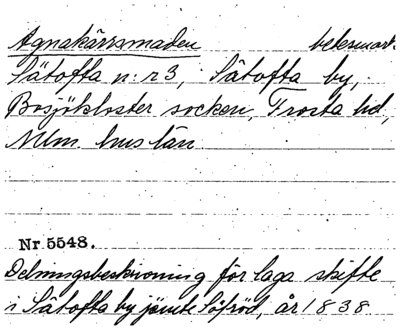 Agnakärrsmaden betesmark.
Sätofta n:r 3, Sätofta by,
Bosjökloster socken, Frosta hd,
Mlm hus län
Nr 5548.
Delningsbeskrivning för laga skifte
i Sätofta by jämte Sjöröd, år 1838